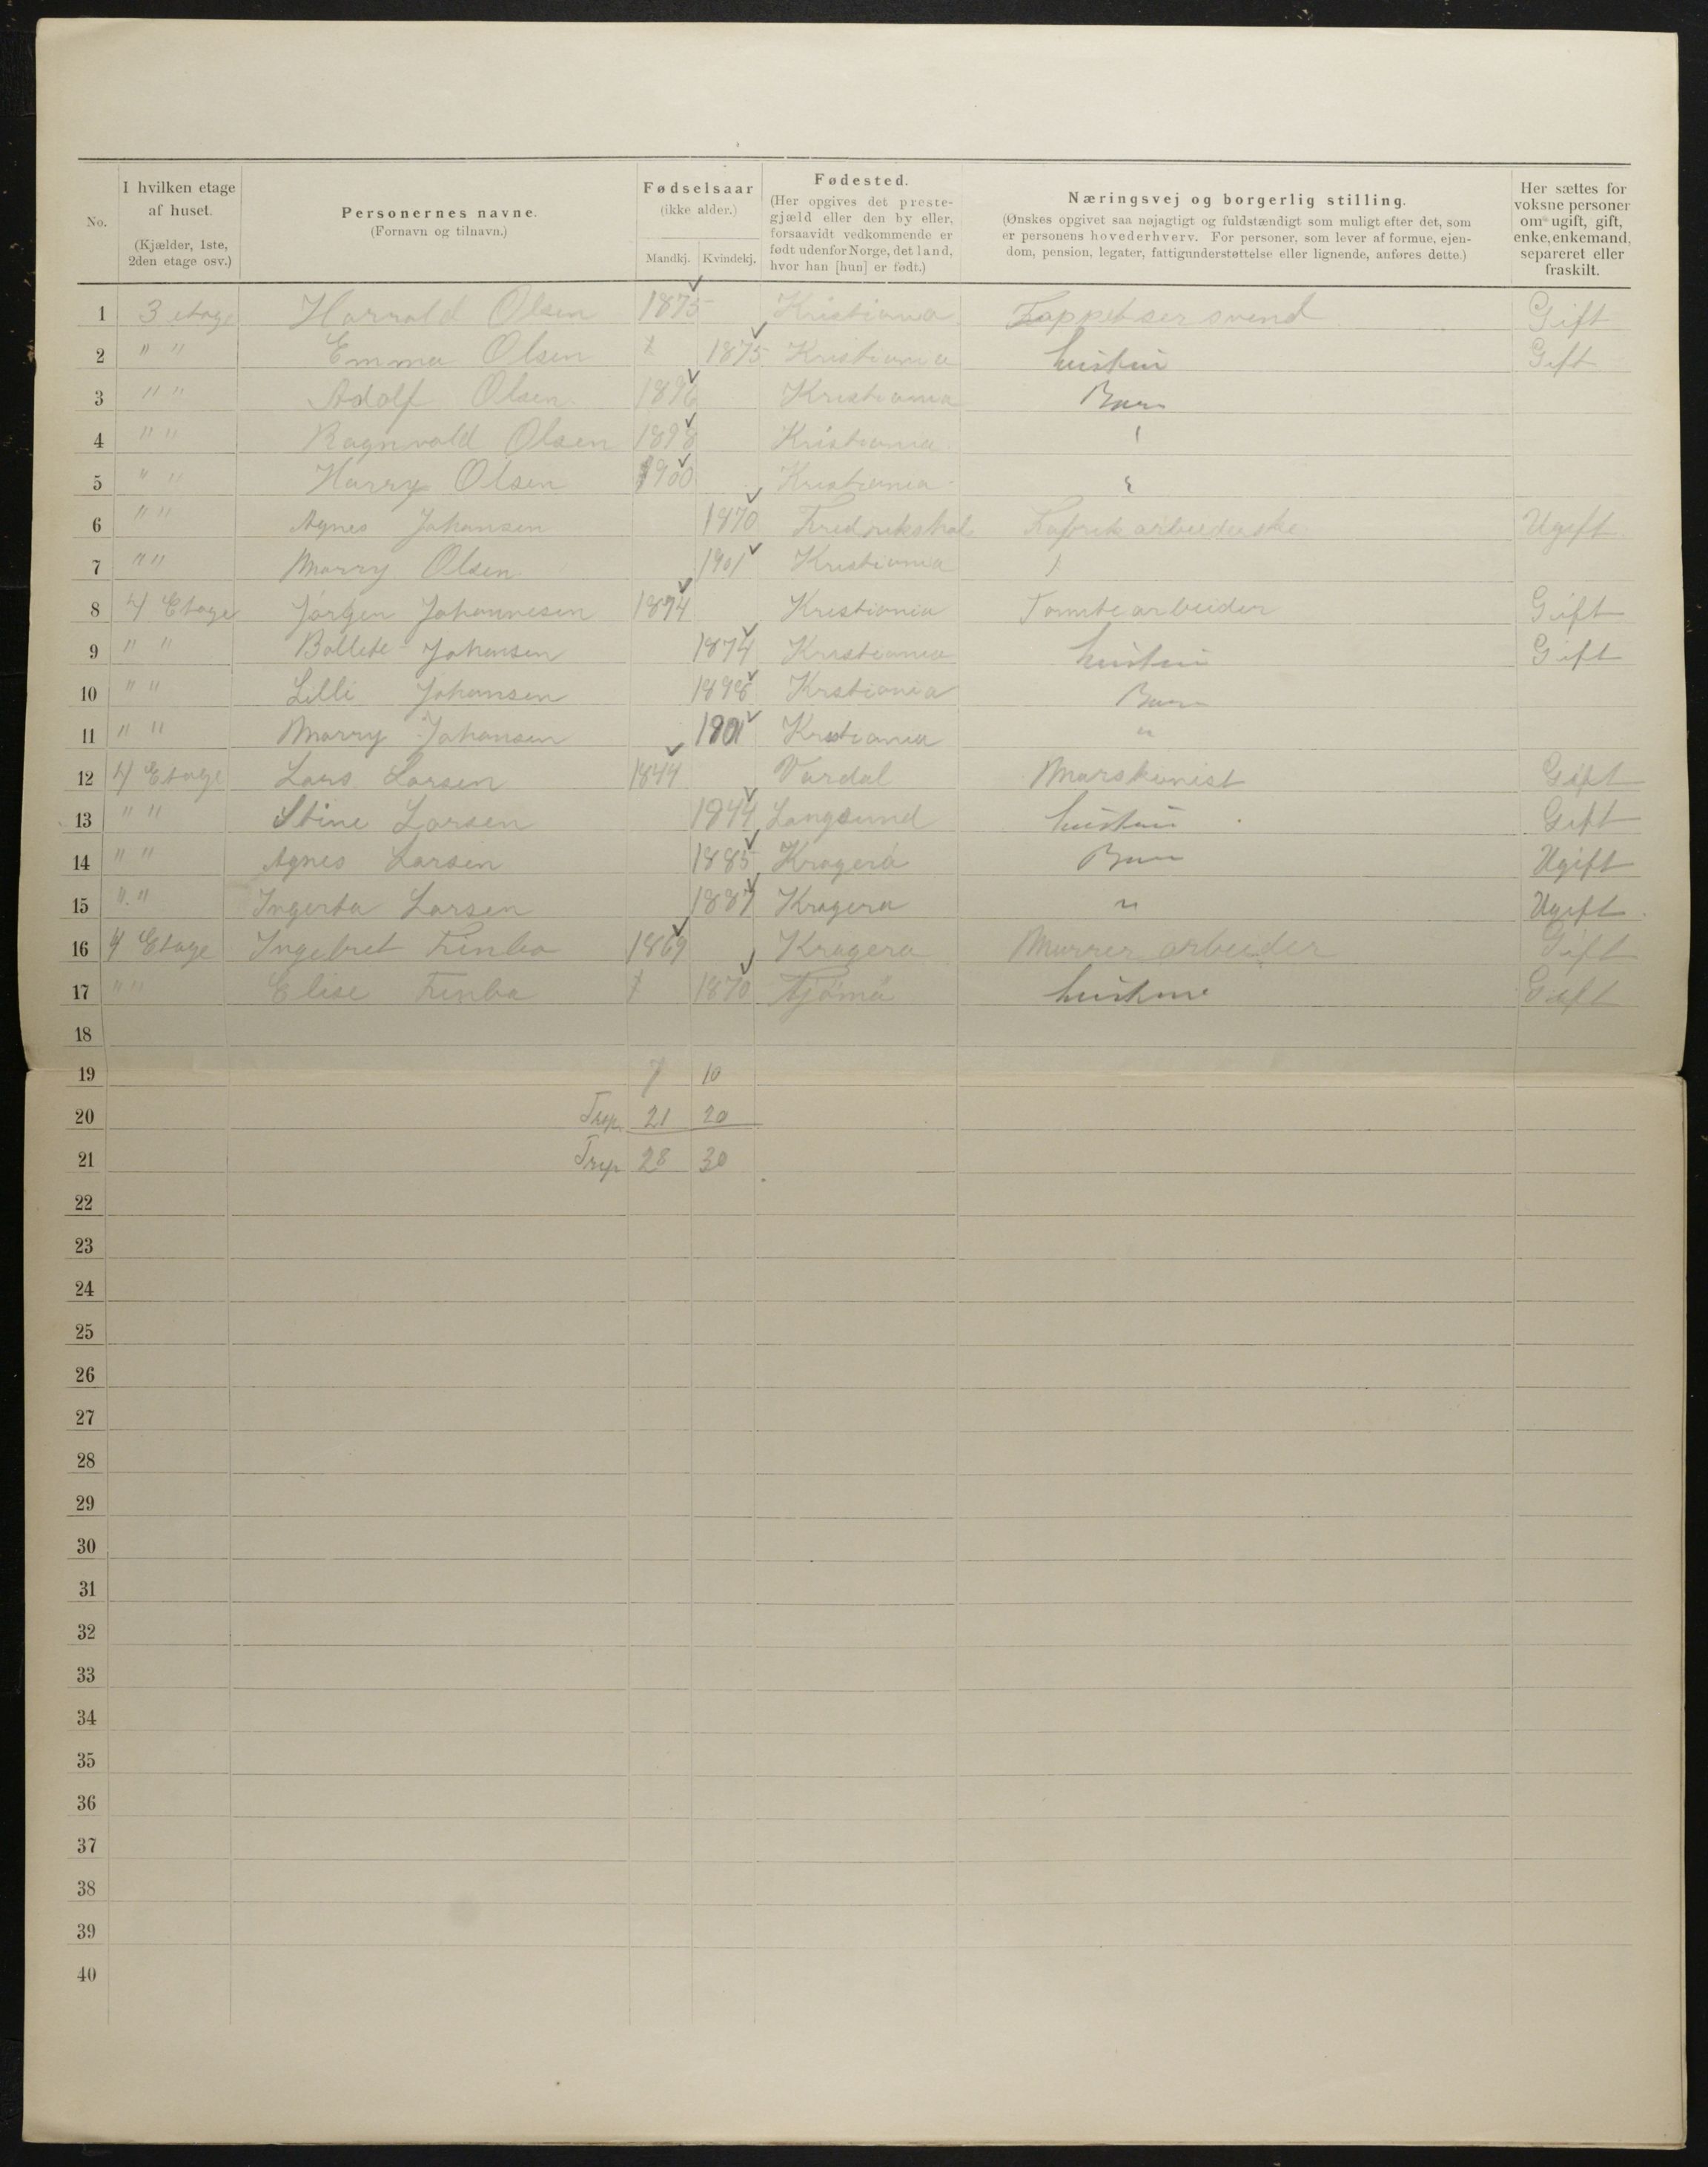 No.
I hvilken etage af huset. (Kjælder, 1ste, 2den etage osv.)
Personernes navne. (Fornavn og tilnavn.)
Fødselsaar (ikke alder.) Mandkj. Kvindekj.
Fødested. (Her opgives det prestegjæld eller den by eller, forsaavidt vedkommende er født udenfor Norge, det land, hvor han [hun] er født.)
Næringsvej og borgerlig stilling. (Ønskes opgivet saa nøjagtigt og fuldstændigt som muligt efter det, som er personens hovederhverv. For personer, som lever af formue, ejendom, pension, legater, fattigunderstøttelse eller lignende, anføres dette.)
Her sættes for voksne personer om ugift, gift, enke, enkemand, separeret eller fraskilt.
1 3 etage Harrald Olsen 1875 Kristiania Tappetser svend Gift
2 " " Emma Olsen 1875 Kristiania hustru Gift
3 " " Adolf Olsen 1896 Kristiania Barn
4 " " Ragnvald Olsen 1898 Kristiania
5 " " Harry Olsen 1900 Kristiania
6 " " Agnes Johansen 1870 Fredrikshal Fabrik arbeiderske Ugift
7 " " Marry Olsen 1901 Kristiania
8 4 Etage Jørgen Johannesen 1874 Kristiania Tomtearbeider Gift
9 " " Bollete Johansen 1874 Kristiania hustru Gift
10 " " Lilli Johansen 1898 Krstiania Barn
11 " " Marry Johansen 1901 Kristiania "
12 4 Etage Lars Larsen 1844 Vardal Marskinist Gift
13 " " Stine Larsen 1844 Langsund hustru Gift
14 " " Agnes Larsen 1885 Kragerø Barn Ugift
15 " " Ingerta Larsen 1887 Kragerø " Ugift
16 4 Etage Ingebret Finbo 1869 Kragerø Murrer arbeider Gift
17 " " Elise Finbo 1870 Tjømø hustru Gift
18
19 7 10
20 Trsp. 21 20
21 Trsp 28 30
22
23
24
25
26
27
28
29
30
31
32
33
34
35
36
37
38
39
40